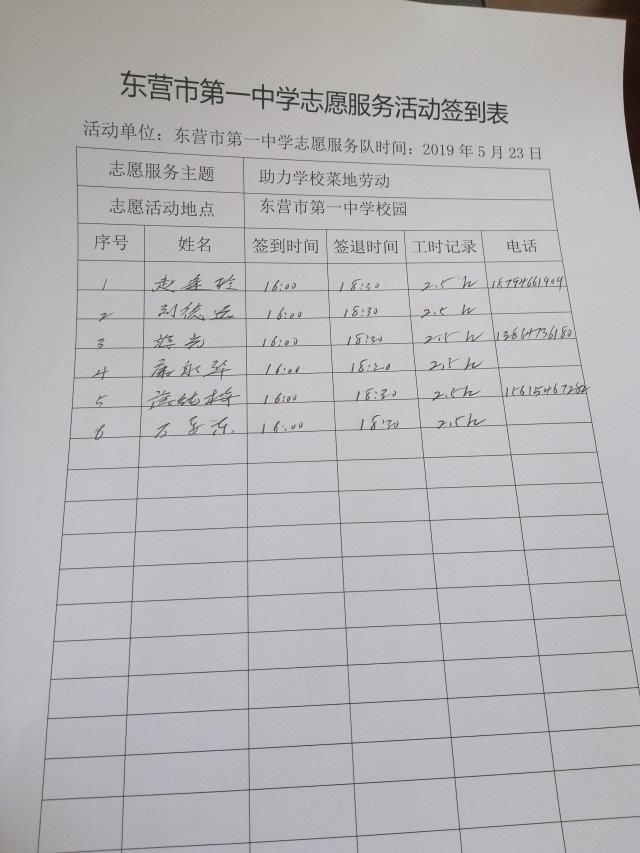 东营市第一中学志愿服务活动签到表
活动单位：东营市第一中学志愿服务队时间：2019 年 5 月 23 日
志愿服务主题 助力学校菜地劳动
志愿活动地点 东营市第一中学校园
序号 姓名 签到时间 签退时间 工时记录 电话
1 赵 玲 16:00 18:30 2.5h 18794661909
2 刘德运 16:00 18:30 2.5h
3 16:00 18:30 2.5h 13864736180
4 16:00 18:30 2.5h
5 梅 16:00 18:30 2.5h 15615467282
6 16:00 18:30 2.5h